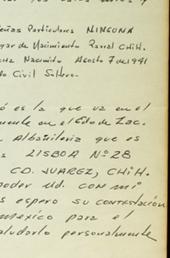 señas Particulares NINGUNA
gar de Nacimiento Parral CHIH.
cha Nacimito Agosto 7 de 1941
do Civil Soltero.
ó es la que va en el
mente en el Edo de Zac.
Albañileria que es
s LISBOA Nº 28
CD. JUAREZ, CHIH.
poder Ud. CON mi
s espero su contestación
mexico para el
aludarlo personalmente